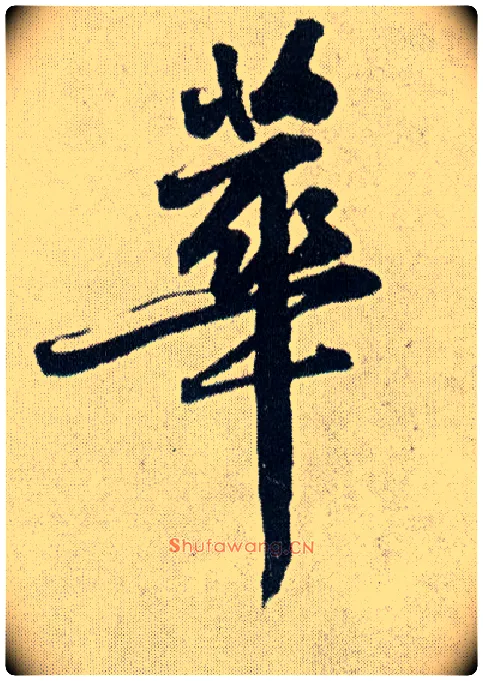 華
Shufawang.CN